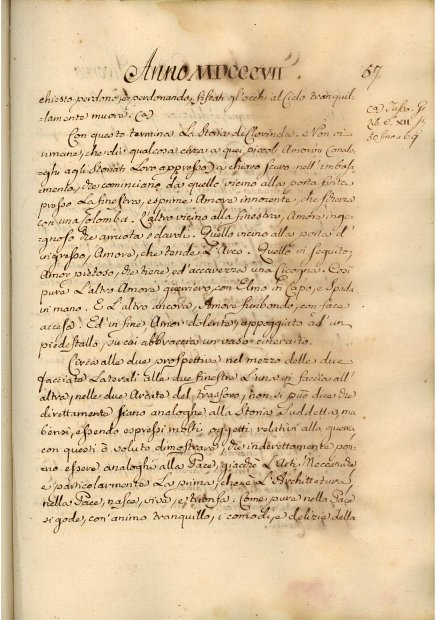 Anno MDCCCVII
57
chiesto perdono, e perdonando, fissati gl'occhi al Cielo tranquil-
lamente muore. (a)
(a) Tasso. G.
Con questo termina La Storia di Clorinda. Non ri-
mane, che dir qualcosa circa a que' piccoli Amorini
eghi agli Stonati Loro appresso) a chiaro scuro nell'imbasa-
mento, che cominciano da quello vicino alla porta
presso La finestra, esprime Amore innocente, che scherza
con una Colomba. L'altro vicino alla finestra, Amore inge-
gnoso che arruota i dardi. Quello vicino alla porta d'
ingresso, Amore, che tende L'Arco. Quello in seguito,
Amor pietoso, che tiene ed accarezza una Cicogna. Così
pure L'altro Amore guerriero, con Elmo in Capo, e Spada
in mano. E L'altro ancora, Amore furibondo, con face
accesa. Ed in fine Amor dolente, appoggiato ad un
piedestallo, su cui abbraccia un vaso cinerario.
Circa alle due prospettive nel mezzo delle due
facciate Laterali alle due finestre L'una in faccia all'
altra, nelle due Arcate del trasforo, non si può dire che
direttamente siano analoghe alla Storia Suddetta, ma
bensì, essendo espressi molti oggetti relativi alla guerra
con questi è voluto dimostrare, che indirettamente pon-
no essere analoghi alla Pace, giacchè L'Arti Meccaniche
e particolarmente La prima, che è L'Architettura
nella Pace, nasce, vive, e trionfa: Come pure nella Pace
si gode, con animo tranquillo, i comodi, e delizie della